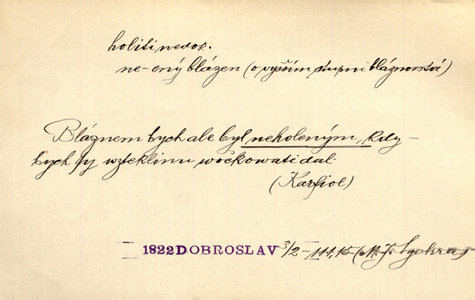 holiti nedok.
ne-ený blázen (o vyšším stupni bláznovství)
Bláznem bych ale byl neholeným, kdy-
bych jej vzteklinu vočkowati dal.
(Karfiol)
1822 DOBROSLAV 3/2 - 111, 15 (M. J. Sychra)